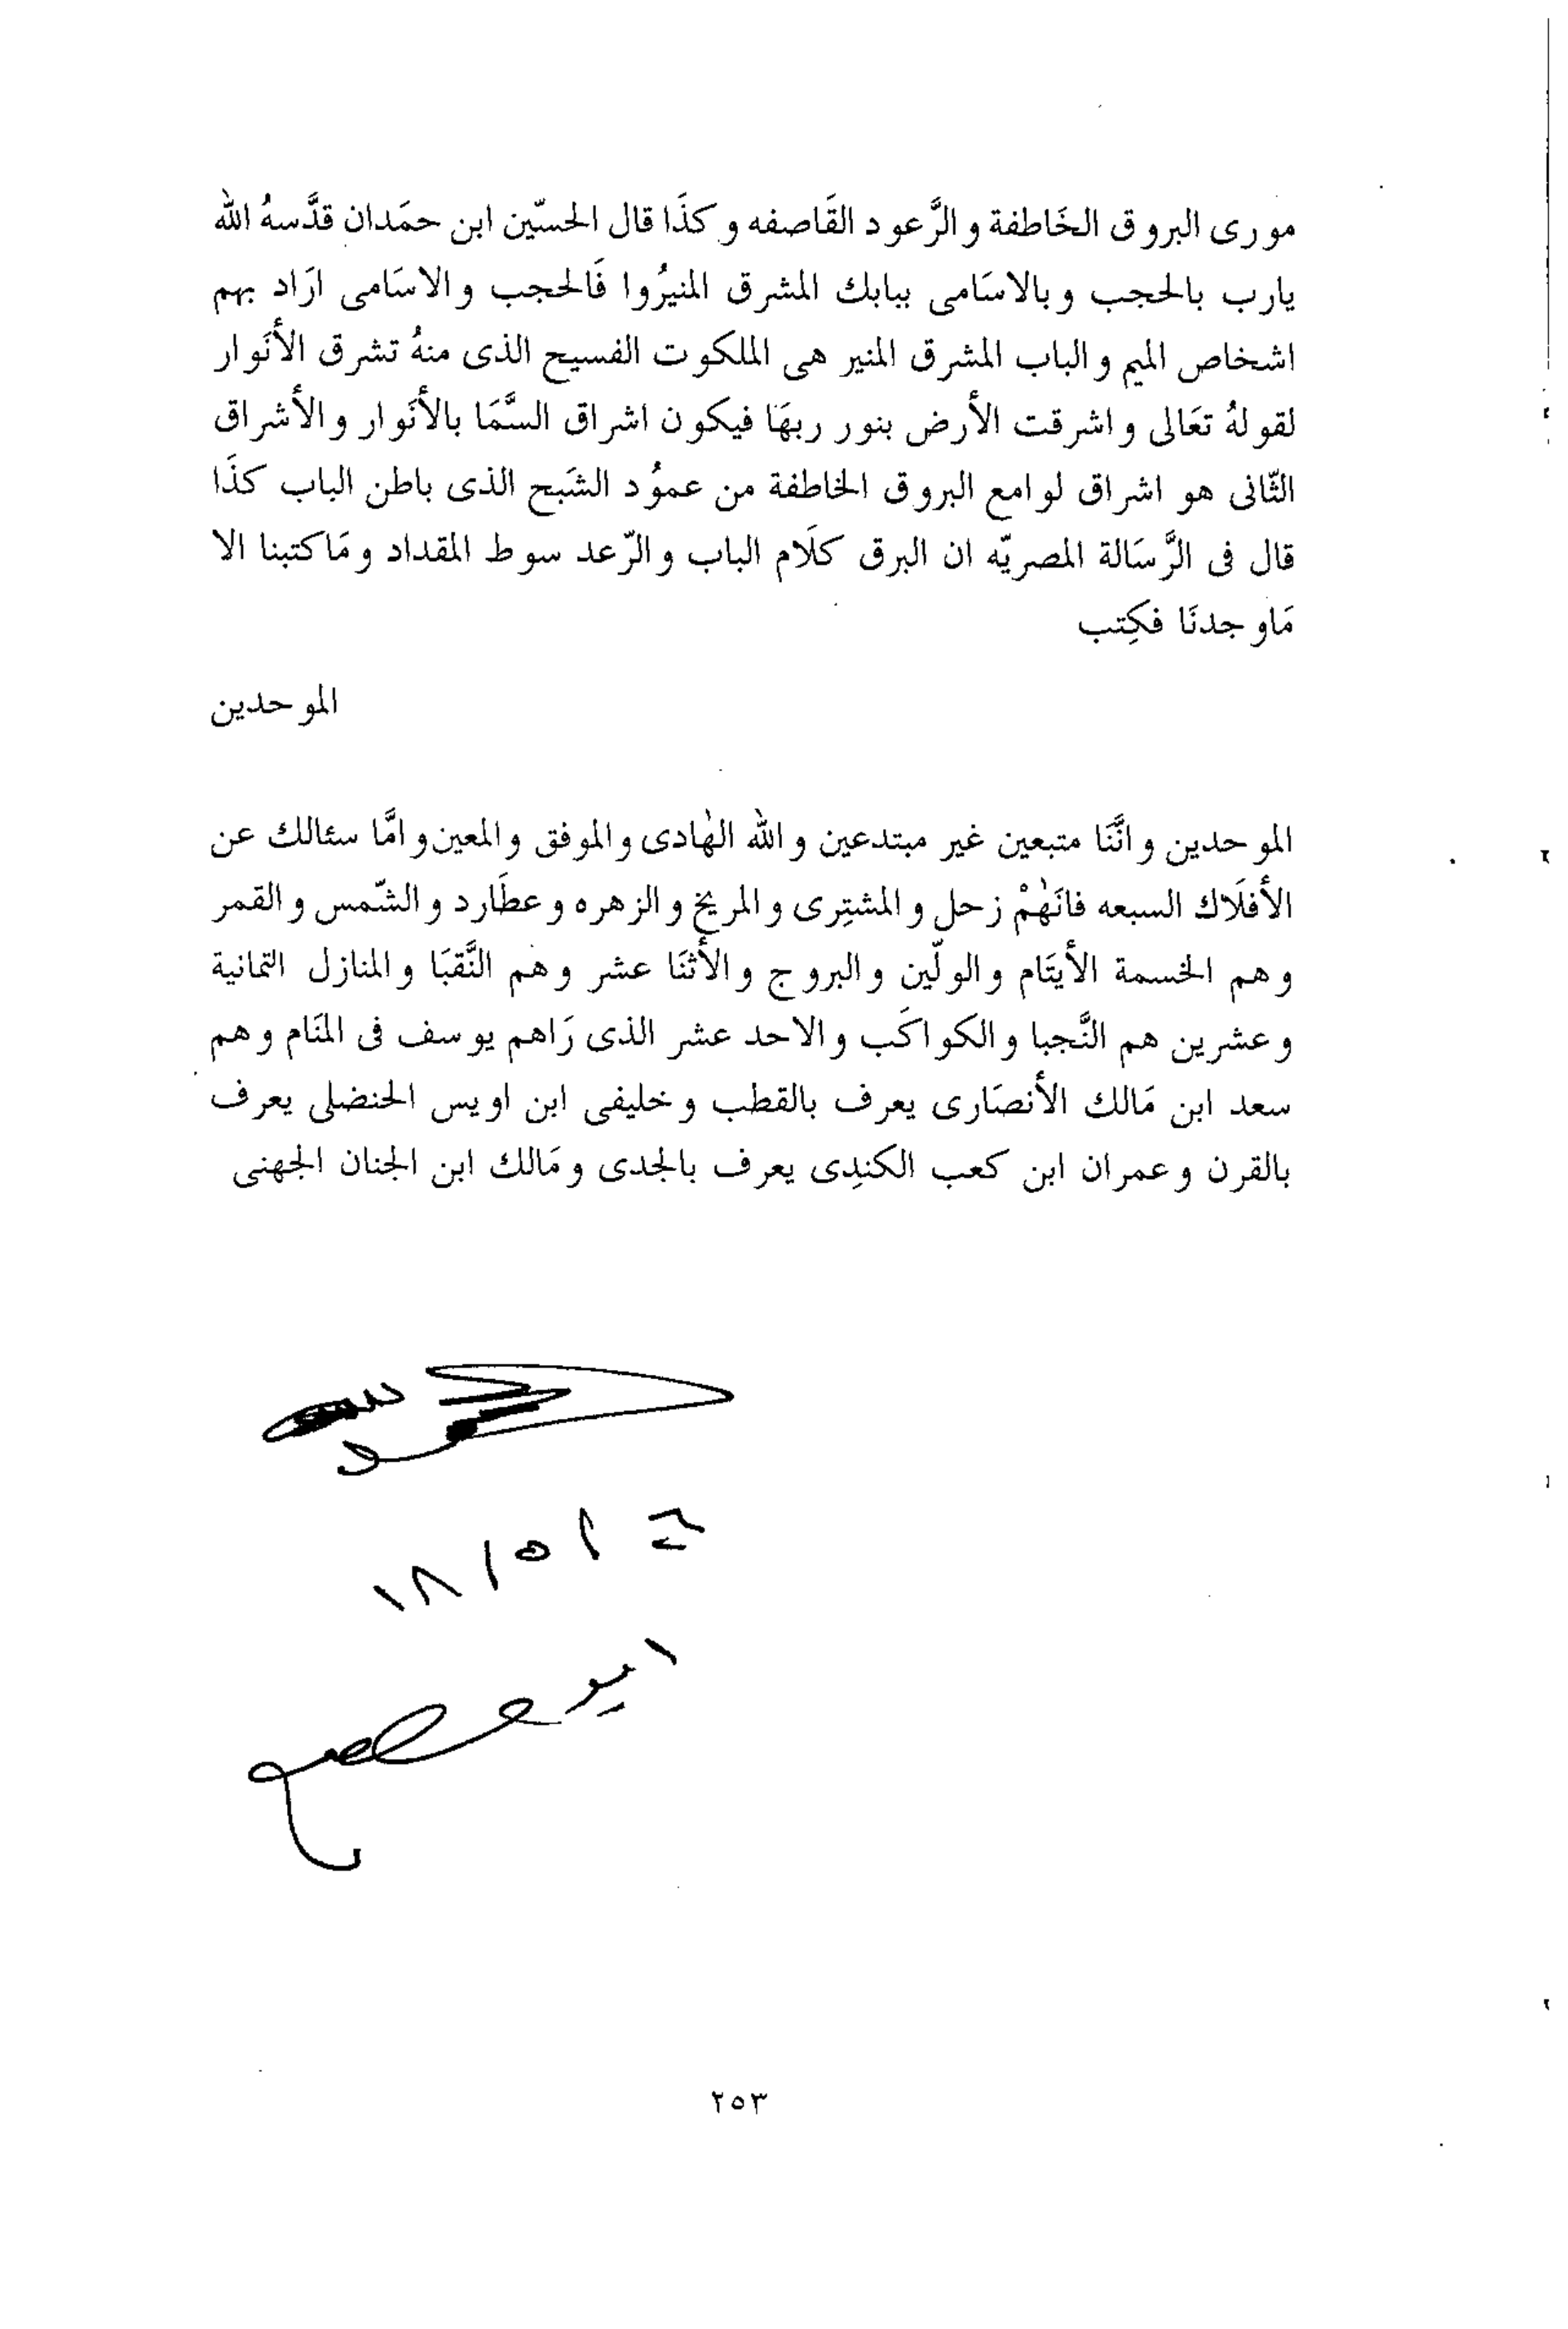 مورى البروق الخَاطفة والرَّعود القَاصفه وكذَا قال الحسّين ابن حمَدان قدَّسهُ الله
يارب بالحجب وبالاسَامى ببابك المشرق المنيرُوا فَالحجب والاسَامى ارَاد بهم
اشخاص الميم والباب المشرق المنير هى الملكوت الفسيح الذى منهُ تشرق الأنَوار
لقولهُ تعَالى واشرقت الأرض بنور ربهَا فيكون اشراق السَّمَا بالأنَوار والأشراق
الثّانى هو اشراق لوامع البروق الخاطفة من عموُد الشَبح الذى باطن الباب كذَا
قال فى الرَّسَالة المصريّه ان البرق كلَام الباب والرّعد سوط المقداد ومَاكتبنا الا
مَاوجدنَا فكِتب
الموحدين
الموحدين وانَّنَا متبعين غير مبتدعين والله الهٰادى والموفق والمعين وامَّا سئالك عن
الأفلَاك السبعه فانَهٰمْ زحل والمشتِرى والمريخ والزهره وعطَارد والشّمس والقمر
وهم الخسمة الأيتَام والولّين والبروج والأثنَا عشر وهم النَّقبَا والمنازل الثمانية
وعشرين هم النَّجبا والكواكَب والاحد عشر الذى رَاهم يوسف فى المنَام وهم
سعد ابن مَالك الأنصَارى يعرف بالقطب وخليفى ابن اويس الحنضلى يعرف
بالقرن وعمران ابن كعب الكندِى يعرف بالجدى ومَالك ابن الجنان الجهنى
٢٥٣